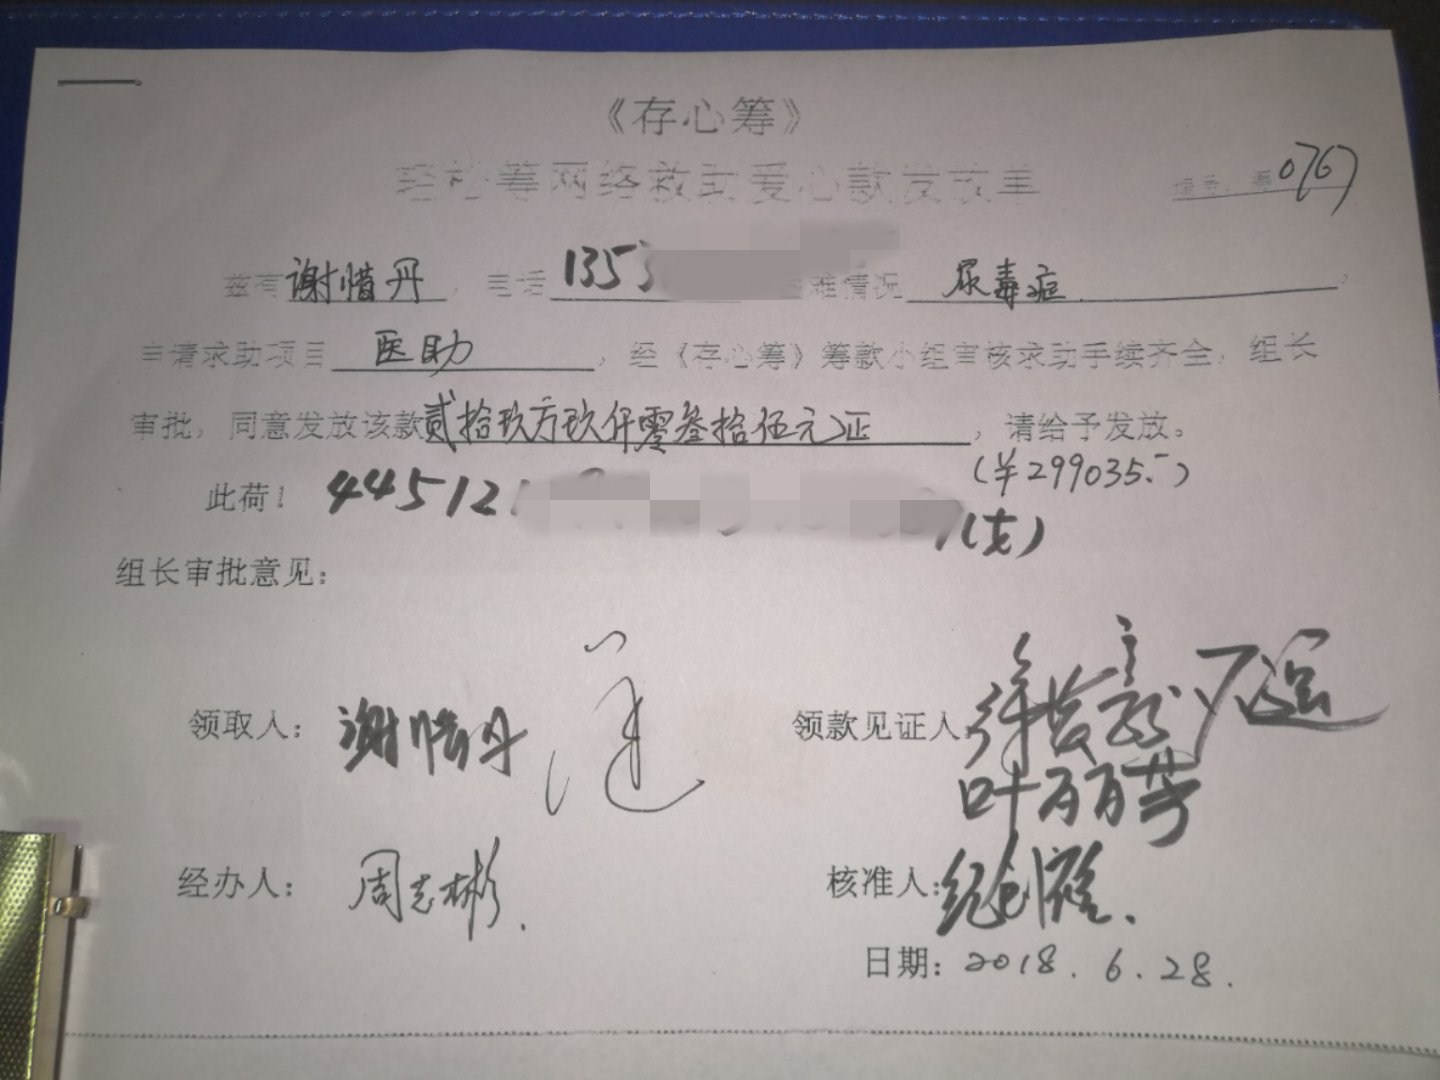 《存心筹》
轻松筹网络救助爱心款发放单 编号：第0767
兹有谢惜丹，电话135 难情况 尿毒症，
申请求助项目 医助 ，经《存心筹》筹款小组审核求助手续齐全，组长
审批，同意发放该款贰拾玖万玖仟零叁拾伍元正，请给予发放。
(￥299035.-)
此荷！ 44512
组长审批意见：
领取人：谢惜丹 领款见证人
叶丽芳
经办人：周志彬. 核准人：
日期：2018.6.28.